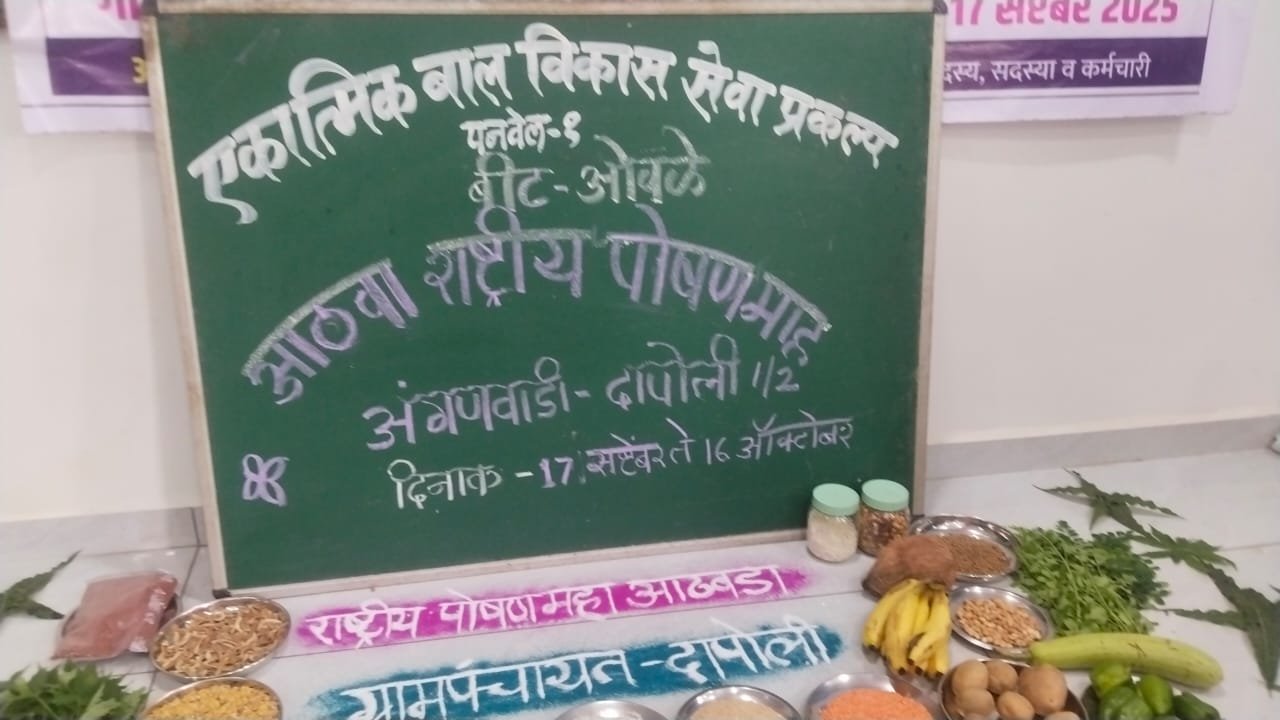 17 सप्टेंबर 2025
दस्य, सदस्या व कर्मचारी
एकात्मिक बाल विकास सेवा प्रकल्प
पनवेल-१
बीट-ओवळे
आठवा राष्ट्रीय पोषणमाह
अंगणवाडी- दापोली 1/2
दिनाक -17 सप्टेंबर ते 16 ऑक्टोबर
राष्ट्रीय पोषण महा आठवडा
ग्रामपंचायत-दापोली